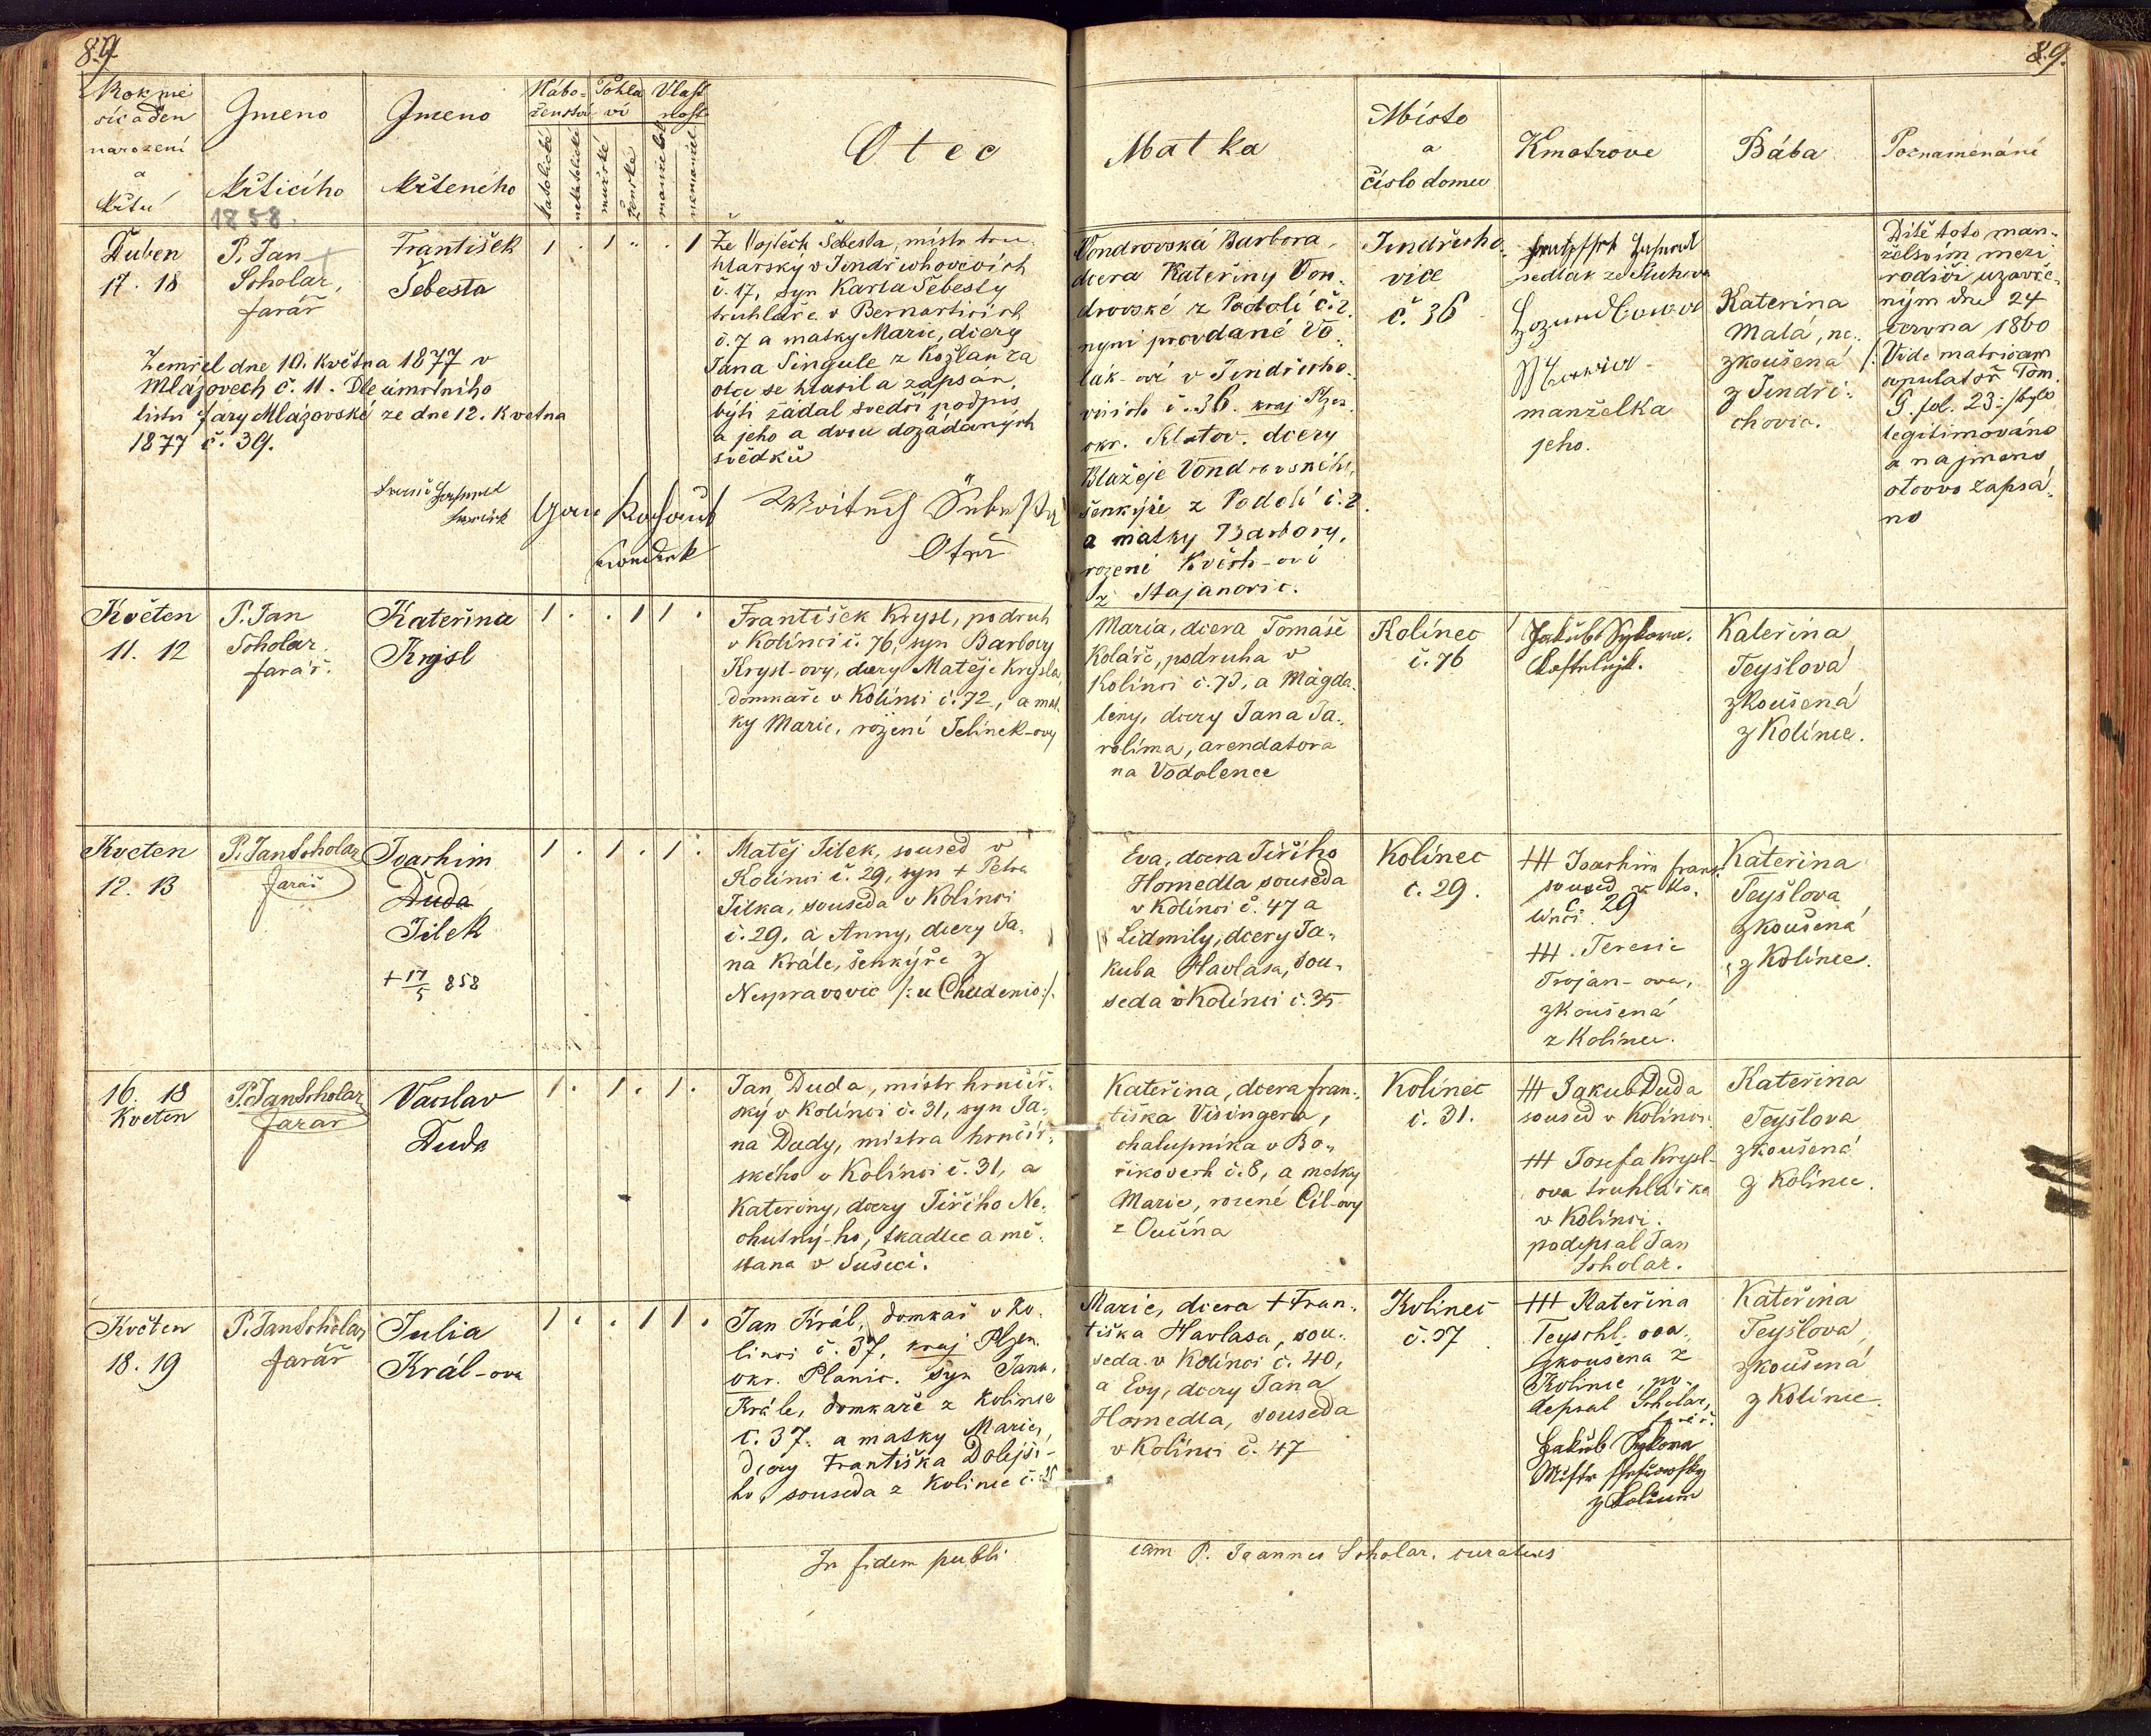 89.
89.
Rok mě
síc a den
narození
a
křtu
Gmeno
křticího
1858.
Gmeno
křteného
Nábo=
ženství
katolické
nekatolické
Pohla
ví
mužské
ženské
Vlast
nost
manželské
nemanžel
Otec
Matka
Místo
a
číslo domu
Kmotrove
Bába
Poznamenání
Duben
17. 18
P. Jan
Scholar,
farář
František
Šebesta
1 . 1 .. . 1
Že Vojtěch Šebesta, mistr tru-
hlařský v Jindřichovicích
č. 17, syn Karla Šebesty
truhláře v Bernarticích
č. 7 a matky Marie, dcery
Jana Singule z Kožlan za
otce se hlásil a zapsán
býti žádal svědčí podpis
a jeho a dvou dožádaných
svědků
Zemřel dne 10. Května 1877 v
Mlázovech č. 11. Dle úmrtního
listu fary Mlázovské ze dne 12. Května
1877 č. 39.
Otec
Vondrovská Barbora,
dcera Kateřiny Von-
drovské z Podolí č. 2.
nyní provdané Vo-
lák-ové v Jindřicho-
vicích č. 36. kraj Plzes.
okr. Klatov. dcery
Blažeje Vondrovského,
šenkýře z Podolí č. 2.
a matky Barbory,
rozené Květh-ové
z Stajanovic.
Jindřicho-
vice
č. 36
sedlák ze
manželka
jeho.
Kateřina
Malá, ne-
zkoušená
z Jindři-
chovic.
Dítě toto man-
želstvím mezi
rodiči uzavře-
ným dne 24
června 1860
/: Vide matricam
copulator. Tom.
G. fol. 23 :/ bylo
legitimováno
a na jméno
otcovo zapsá-
no
Květen
11. 12
P. Jan
Scholar,
farář.
Kateřina
Krysl
1 . . 1 1 .
František Krysl, podruh
v Kolínci č. 76, syn Barbory
Krysl-ovy, dcery Matěje Krysla,
domkaře v Kolínci č. 72, a mat-
ky Marie, rozené Jelínek-ovy
Maria, dcera Tomáše
Koláře, podruha v
Kolínci č. 73, a Magda-
leny, dcery Jana Ja-
rolíma, arendatora
na Vodolence
Kolínec
č. 76
Jakub Sykora.
Kateřina
Teyšlová
zkoušená
z Kolínce.
Květen
12. 13
P. Jan Scholar
farář
Joachim
Duda
Jilek
+ 17/5 858
1 . 1 . 1 .
Matěj Jilek, soused v
Kolínci č. 29, syn + Petra
Jilka, souseda v Kolínci
č. 29. a Anny, dcery Ja-
na Krále, šenkýře z
Nespravovic /: u Chudenic :/.
Eva, dcera Jiřího
Homedla souseda
v Kolínci č. 47 a
Lidmily, dcery Ja-
kuba Havlasa, sou-
seda v Kolínci č. 35
Kolínec
č. 29.
+++ Joachim Frant.
soused v Ko-
línci č. 29
+++ Teresie
Trojan-ova,
zkoušená
z Kolínce.
Kateřina
Teyšlova
zkoušená
z Kolínce.
16. 18
Kveten
P. Jan Scholar
farář
Vaclav
Duda
1 . 1 . 1 .
Jan Duda, mistr hrnčíř-
ský v Kolínci č. 31, syn Ja-
na Dudy, mistra hrnčíř-
ského v Kolínci č. 31, a
Kateřiny, dcery Jiřího Ne-
chutný-ho, tkadlce a mě-
šťana v Sušici.
Kateřina, dcera Fran-
tiška Visingera,
chalupníka v Bo-
říkovech č. 8, a matky
Marie, rozené Cíl-ovy
z Oučína
Kolínec
č. 31.
+++ Jakub Duda
soused v Kolínci.
+++ Josefa Krysl-
ova truhlářka
v Kolínci.
podepsal Jan
Scholar.
Kateřina
Teyšlova
zkoušená
z Kolínce.
Květen
18. 19
P. Jan Scholar
farář
Julia
Král-ova
1 . . 1 1 .
Jan Král, domkář v Ko-
línci č. 37, kraj Plzen.
okr. Planic. syn Jana
Krále, domkaře z Kolínce
č. 37. a matky Marie,
dcery Františka Dolejší-
ho, souseda z Kolínce č. 25
Marie, dcera + Fran-
tiška Havlasa, sou-
seda v Kolínci č. 40,
a Evy, dcery Jana
Homedla, souseda
v Kolínci č. 47
Kolínec
č. 37
+++ Kateřina
Teyschl-ova,
zkoušena z
Kolince, po-
depsal Scholar,
farář.
Jakub Sykora
Kateřina
Teyšlova,
zkoušená
z Kolínce.
In fidem publi
cam P. Joannes Scholar, curatus